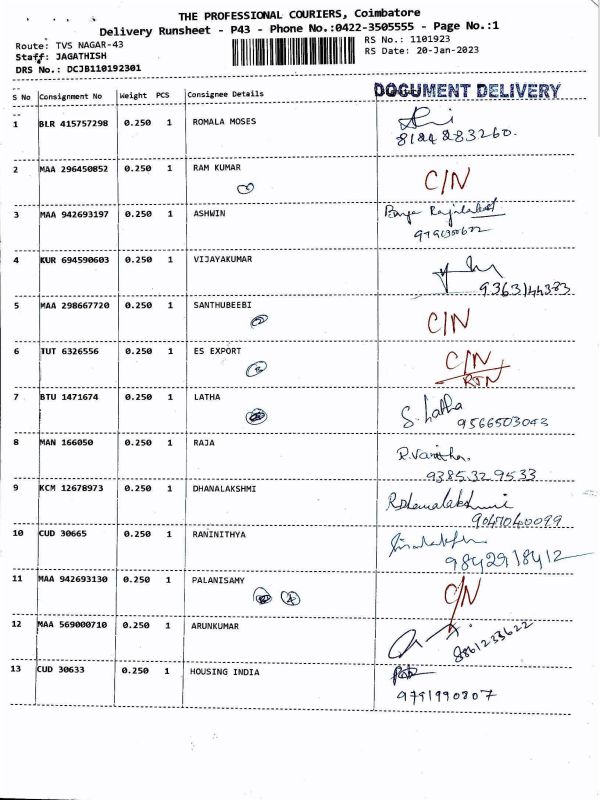 THE PROFESSIONAL COURIERS, Coimbatore
Delivery Runsheet - P43 - Phone No.:0422-3505555 - Page No.:1
Route: TVS NAGAR-43 RS No.: 1101923
Staff: JAGATHISH RS Date: 20-Jan-2023
DRS No.: DCJB110192301
S No Consignment No Weight PCS Consignee Details DOCUMENT DELIVERY
1 BLR 415757298 0.250 1 ROMALA MOSES
2 MAA 296450852 0.250 1 RAM KUMAR C/N
3 MAA 942693197 0.250 1 ASHWIN
4 KUR 694590603 0.250 1 VIJAYAKUMAR
9363144383
5 MAA 298667720 0.250 1 SANTHUBEEBI C/N
6 TUT 6326556 0.250 1 ES EXPORT C/N
RTN
7 BTU 1471674 0.250 1 LATHA S. Latha
9566503043
8 MAN 166050 0.250 1 RAJA
9385329533
9 KCM 12678973 0.250 1 DHANALAKSHMI
9047040099
10 CUD 30665 0.250 1 RANINITHYA
9842918412
11 MAA 942693130 0.250 1 PALANISAMY C/N
12 MAA 569000710 0.250 1 ARUNKUMAR
8861233622
13 CUD 30633 0.250 1 HOUSING INDIA
9791990807